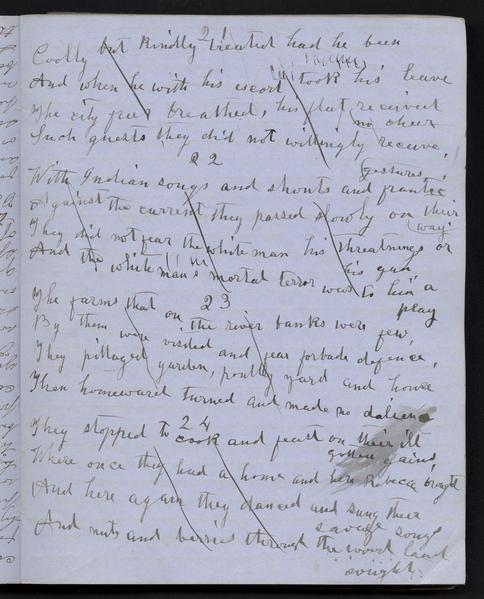 21
Coolly but kindly treated had he been
And when he with his escort took his leave
The city free breathed, his flat received
no cheer
Such guests they did not willingly receive,
22
With Indian songs and shouts and frantic
gestures
Against the current they passed slowly on their
(way
They did not fear the white man his threatnings or
his gun
And the white man's mortal terror was to him a
play
23
The farms that on the river banks were few,
By them were visited and fear forbade defence,
They pillaged garden, poultry yard and house
Then homeward turned and made no
24
They stopped to cook and feast on their ill
gotten gains,
Where once they had a home and here Rebecca brought
And here again they danced and sung their
savage songs
And nuts and berries through the wood land
sought.